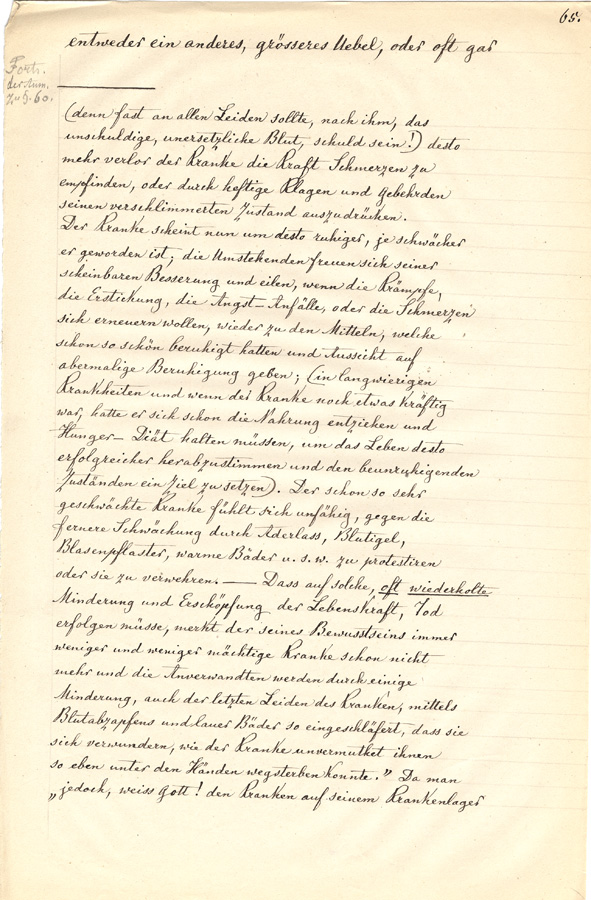 65.
entweder ein anderes, grösseres Uebel, oder oft gar
Forts.
der Anm.
zu §. 60.
(denn fast an allen Leiden sollte, nach ihm, das
unschuldige, unersetzliche Blut, schuld sein!) desto
mehr verlor der Kranke die Kraft Schmerzen zu
empfinden, oder durch heftige Klagen und Gebehrden
seinen verschlimmerten Zustand auszudrücken.
Der Kranke scheint nun um desto ruhiger, je schwächer
er geworden ist; die Umstehenden freuen sich seiner
scheinbaren Besserung und eilen, wenn die Krämpfe,
die Erstickung, die Angst-Anfälle, oder die Schmerzen
sich erneuern wollen, wieder zu den Mitteln, welche
schon so schön beruhigt hatten und Aussicht auf
abermalige Beruhigung geben; (in langwierigen
Krankheiten und wenn der Kranke noch etwas kräftig
war, hatte er sich schon die Nahrung entziehen und
Hunger-Diät halten müssen, um das Leben desto
erfolgreicher herabzustimmen und den beunruhigenden
Zuständen ein Ziel zu setzen). Der schon so sehr
geschwächte Kranke fühlt sich unfähig, gegen die
fernere Schwächung durch Aderlass, Blutigel,
Blasenpflaster, warme Bäder u. s. w. zu protestiren
oder sie zu verwehren. — Dass auf solche, oft wiederholte
Minderung und Erschöpfung der Lebenskraft, Tod
erfolgen müsse, merkt der seines Bewusstseins immer
weniger und weniger mächtige Kranke schon nicht
mehr und die Anverwandten werden durch einige
Minderung, auch der letzten Leiden des Kranken, mittels
Blutabzapfens und lauer Bäder so eingeschläfert, dass sie
sich verwundern, wie der Kranke unvermuthet ihnen
so eben unter den Händen wegsterben konnte." Da man
„jedoch, weiss Gott! den Kranken auf seinem Krankenlager